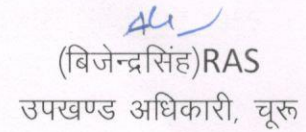 (बिजेन्द्रसिंह)RAS
उपखण्ड अधिकारी, चूरू